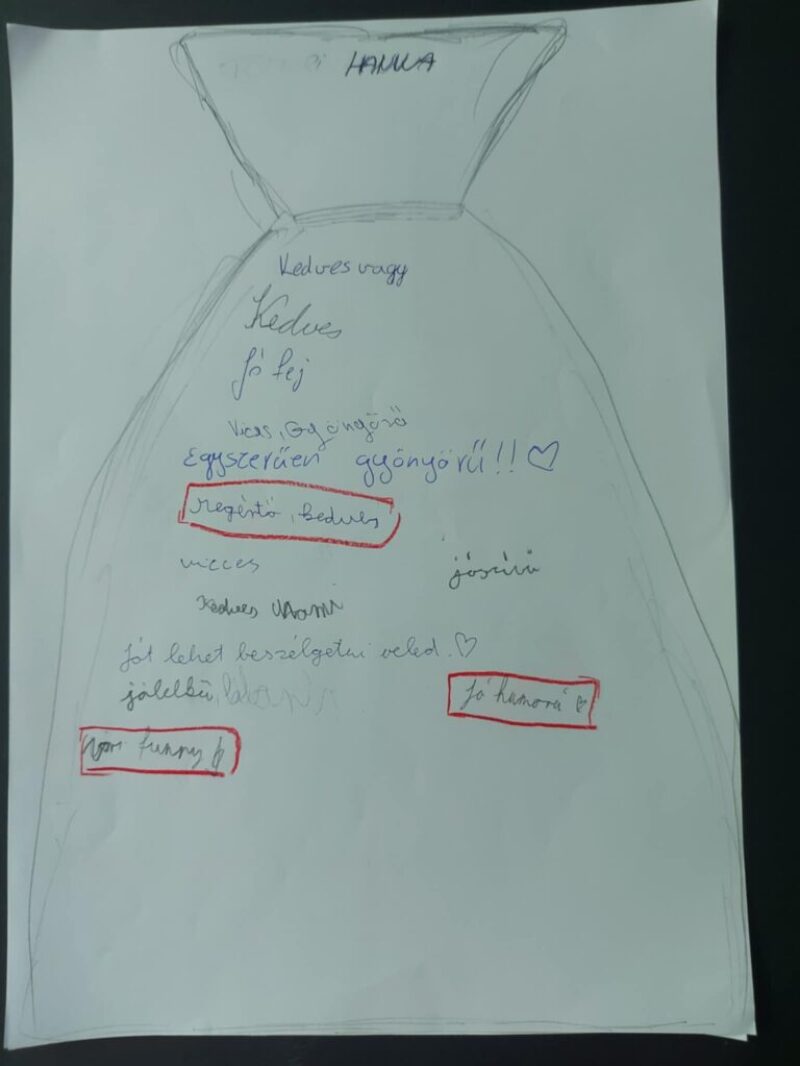 HANNA
Kedves vagy
Kedves
Jó fej
Vices, Gyöngörű
Egyszerűen gyönyörű!! ♡
Megértő, kedves
vicces
jószívű
Kedves
Jót lehet beszélgetni veled. ♡
jólelkű,
Jó humorú
funny